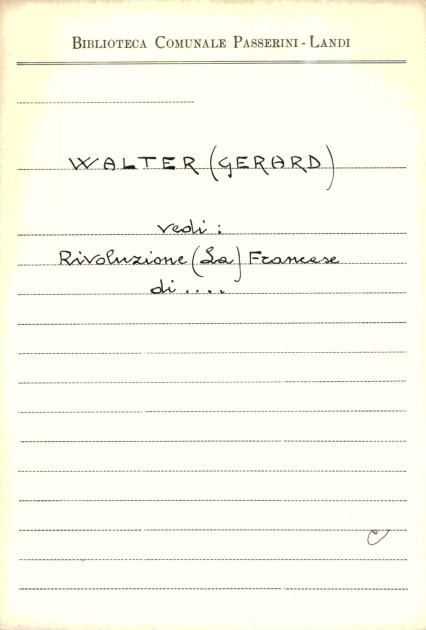 BIBLIOTECA COMUNALE PASSERINI - LANDI
WALTER (GERARD)
vedi :
Rivoluzione (La) Francese
di ....